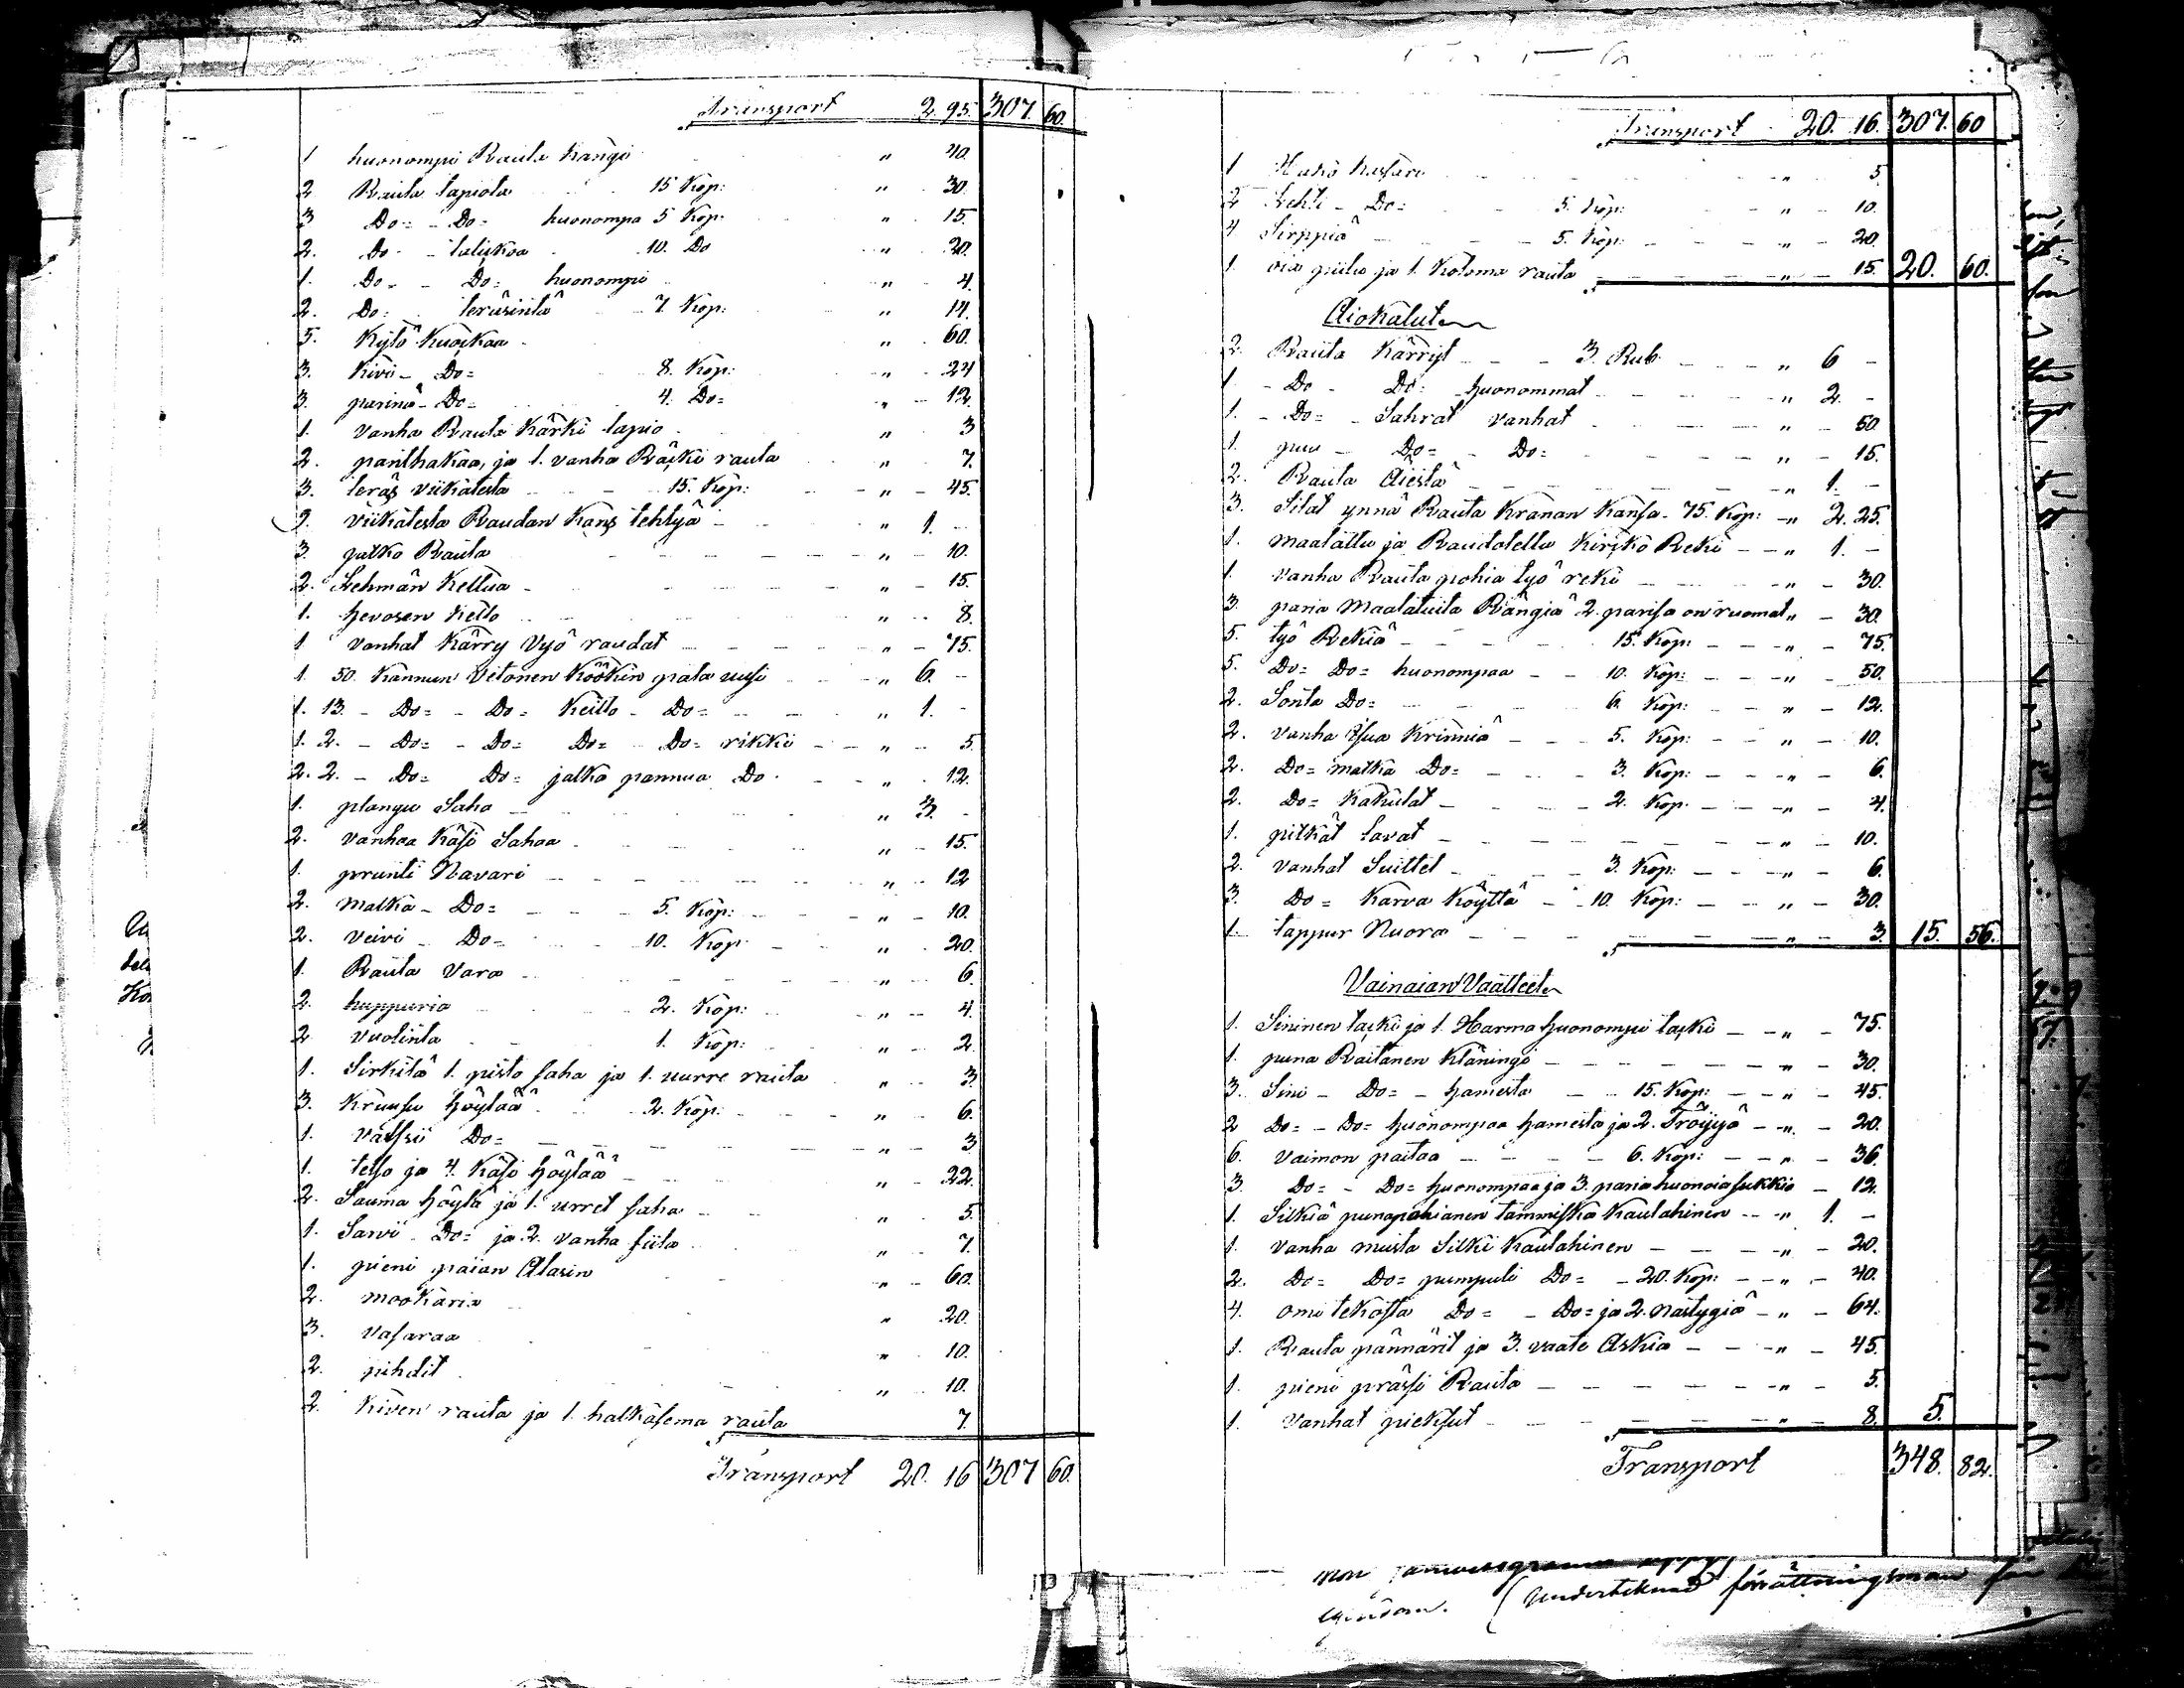 Transport 2. 95. 307. 60.
1 huonompi Rauta Kangi " 40.
2 Rauta lapiota 15 Kop: " 30.
3 Do= - Do= huonompa 5 Kop. " 15.
2. Do - taliskoa 10. Do " 20.
1. Do - Do= huonompi " 4.
2. Do= terasinta 7 Kop: " 14.
5. Kytö Kuockaa " 60.
3. Kivi - Do= 8. Kop: " 24
3. parina - Do= 4. Do= " 12.
1. Vanha Rauta Kärki lapio " 3
2. panthakaa, ja 1. vanha Räcki rauta " 7.
3. teräs viikatesta 15. Kop: " 45.
2. Viikatesta Raudan Kans tehtyä " 1. -
3. jatko Rauta " 10.
2. Lehmän Kellua " 15.
1. hevosen Kello " 8.
1 Vanhat Kärry Vyö raudat " 75.
1. 50. Kannun Vetonen Köökin pata uusi " 6. -
1. 13. - Do= - Do= Keitto - Do= " 1. -
1. 2. - Do= - Do= Do= Do= rikki " 5
2. 2. - Do= Do= jalko pannua Do " 12.
1. plangu Saha " 3. -
2. vanhaa Käsi Sahaa " 15.
1. prunti Navari " 12
2. Matka - Do= 5. Kop: " 10.
2. Veivi - Do= 10. Kop " 20.
1. Rauta Vara " 6
2. huppuria 2. Kop: " 4.
2 Vuolinta 1. Kop: " 2
1. Sirkilä 1. pisto saha ja 1. uurre rauta " 3
3. Kruusu höylää 2. Kop. " 6.
1. Valssi Do= " 3
1. telso ja 4. Käsi höylää " 22.
2. Sauma höylä ja 1. urret saha " 5.
1. Sarvi Do= ja 2. vanha fiila " 7.
1. pieni paian Alasin " 60.
2. mookaria " 20.
3. Vasaraa " 10.
2. pihdit " 10.
2. Kiven rauta ja 1. halkasema rauta 7.
Transport 20. 16 307 60.
Transport 20. 16. 307. 60
1 Hako kassara " 5
2 Lehti - Do= 5. Kop: " 10.
4 Sirppiä 5. Kop: " 20.
1. oia piilu ja 1. Koloma rauta " 15. 20. 60.
Aiokalut
2. Rauta Kärryt 3. Rub " 6 -
1 - Do - Do: huonommat " 2. -
1. - Do= - Sahrat vanhat " 50
1. puu - Do= - Do= " 15.
2. Rauta Äiestä " 1. -
3. Silat ynnä Rauta Kranan Kansa - 75. Kop: " 2. 25.
1. Maalattu ja Raudotettu Kirko Reki " 1. -
1. Vanha Rauta pohia työ reki " 30.
3. paria Maalatuita Rängiä 2. parisa on ruomat " 30.
5. työ Rekiä 15. Kop: " 75.
5. Do= Do= huonompaa 10. Kop: " 50.
2. Sonta Do= 6. Kop: " 12.
2. Vanha Isua Krinniä 5. Kop: " 10.
2. Do= matka Do= 3. Kop: " 6.
2. Do= Kakulat 2. Kop. " 4.
1. pitkät lavat " 10.
2. vanhat Suittet 3. Kop: " 6.
3. Do= Karva Köyttä 10. Kop: " 30.
1. tappur Nuora " 3. 15. 56.
Vainaian Vaatteet
1. Sininen tacki ja 1. Harma huonompi tacki " 75.
1. puna Raitanen Kläningi " 30.
3. Sini - Do= - hameita 15. Kop: " 45.
2 Do= - Do= huonompaa hameita ja 2. Tröijyä " 20.
6. Vaimon paitaa 6. Kop: " 36.
3. Do= - Do= huonompaa ja 3. paria huonoia sukkia 12.
1. Silkiä punapohianen tammiska Kaulahinen " 1. -
1. vanha musta Silki Kaulahinen " 20.
2. Do= Do= pumpuli Do= - 20. Kop: " 40.
4. omi tekosta Do= - Do= ja 2. nästygiä " 64.
1. Rauta pännärit ja 3. vaate Askia " 45.
1. pieni prässi Rauta " 5.
1. Vanhat pieksut " 8. 5.
Transport 348. 82.
Undertecknad förrättningsman